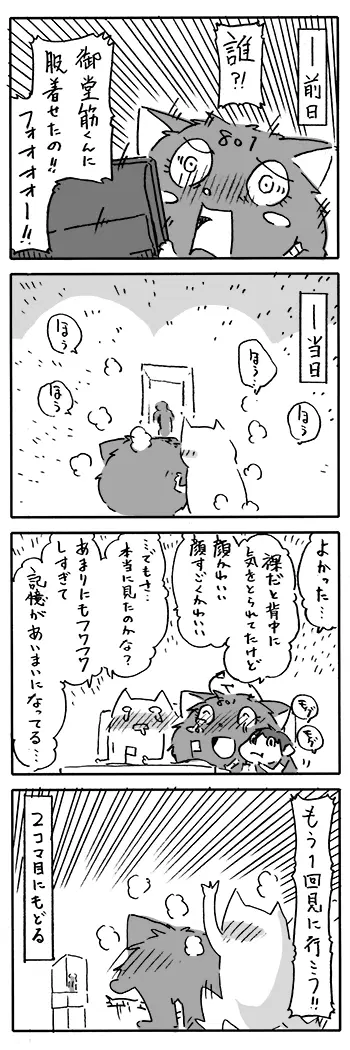 ―前日
誰?!
御堂筋くんに
服着せたの!!
フォオオオー!!
―当日
ほぅ
ほぅ…
ほぅ
ほぅ
よかった…
裸だと背中に
気をとられてたけど
顔かわいい
顔すごくかわいい
…でもさ…
本当に見たのかな?
あまりにもフワフワ
しすぎて
記憶があいまいになってる…
もぞ
もぞ
もう1回見に行こう!!
2コマ目にもどる